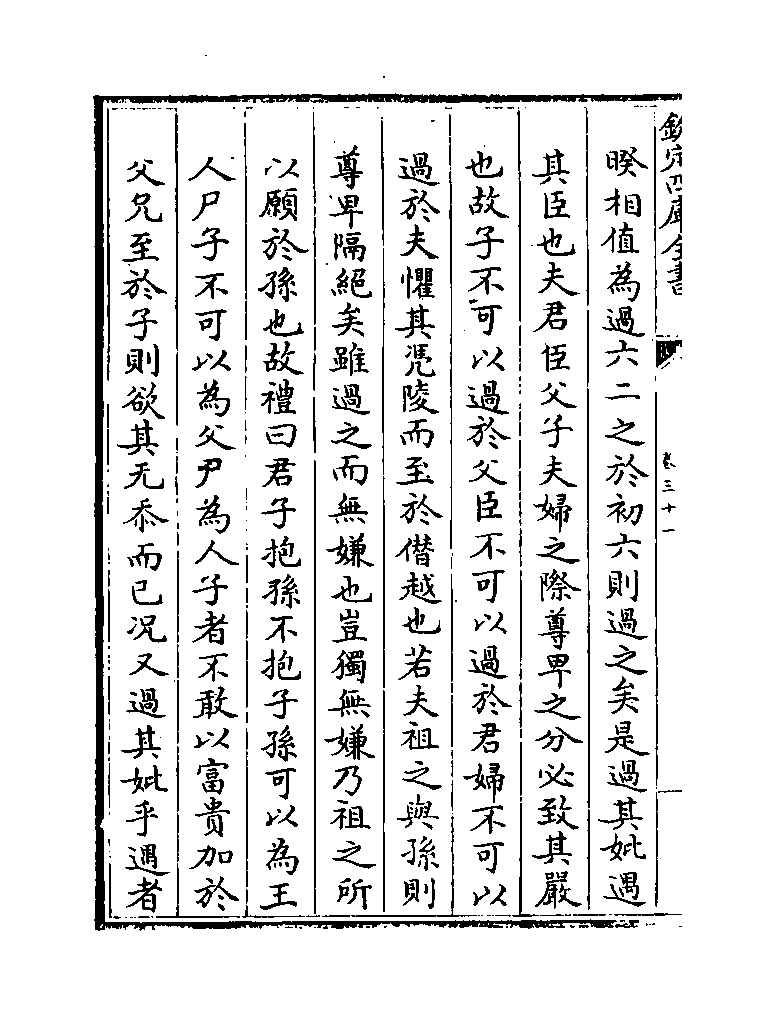 欽定四庫全書
卷三十一
暌相值為過六二之於初六則過之矣是過其妣遇
其臣也夫君臣父子夫婦之際尊卑之分必致其嚴
也故子不可以過於父臣不可以過於君婦不可以
過於夫懼其憑陵而至於僭越也若夫祖之與孫則
尊卑隔絕矣雖過之而無嫌也豈獨無嫌乃祖之所
以願於孫也故禮曰君子抱孫不抱子孫可以為王
人尸子不可以為父尸為人子者不敢以富貴加於
父兄至於子則欲其无忝而已况又過其妣乎遇者